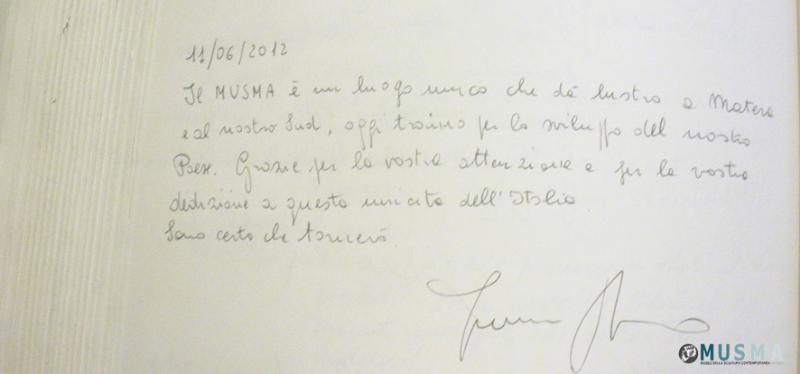 11/06/2012
Il MUSMA è un luogo unico che dà lustro a Matera
e al nostro Sud, oggi traino per lo sviluppo del nostro
Paese. Grazie per la vostra attenzione e per la vostra
dedizione a questa unicità dell'Italia
Sono certo che tornerò.
MUSMA